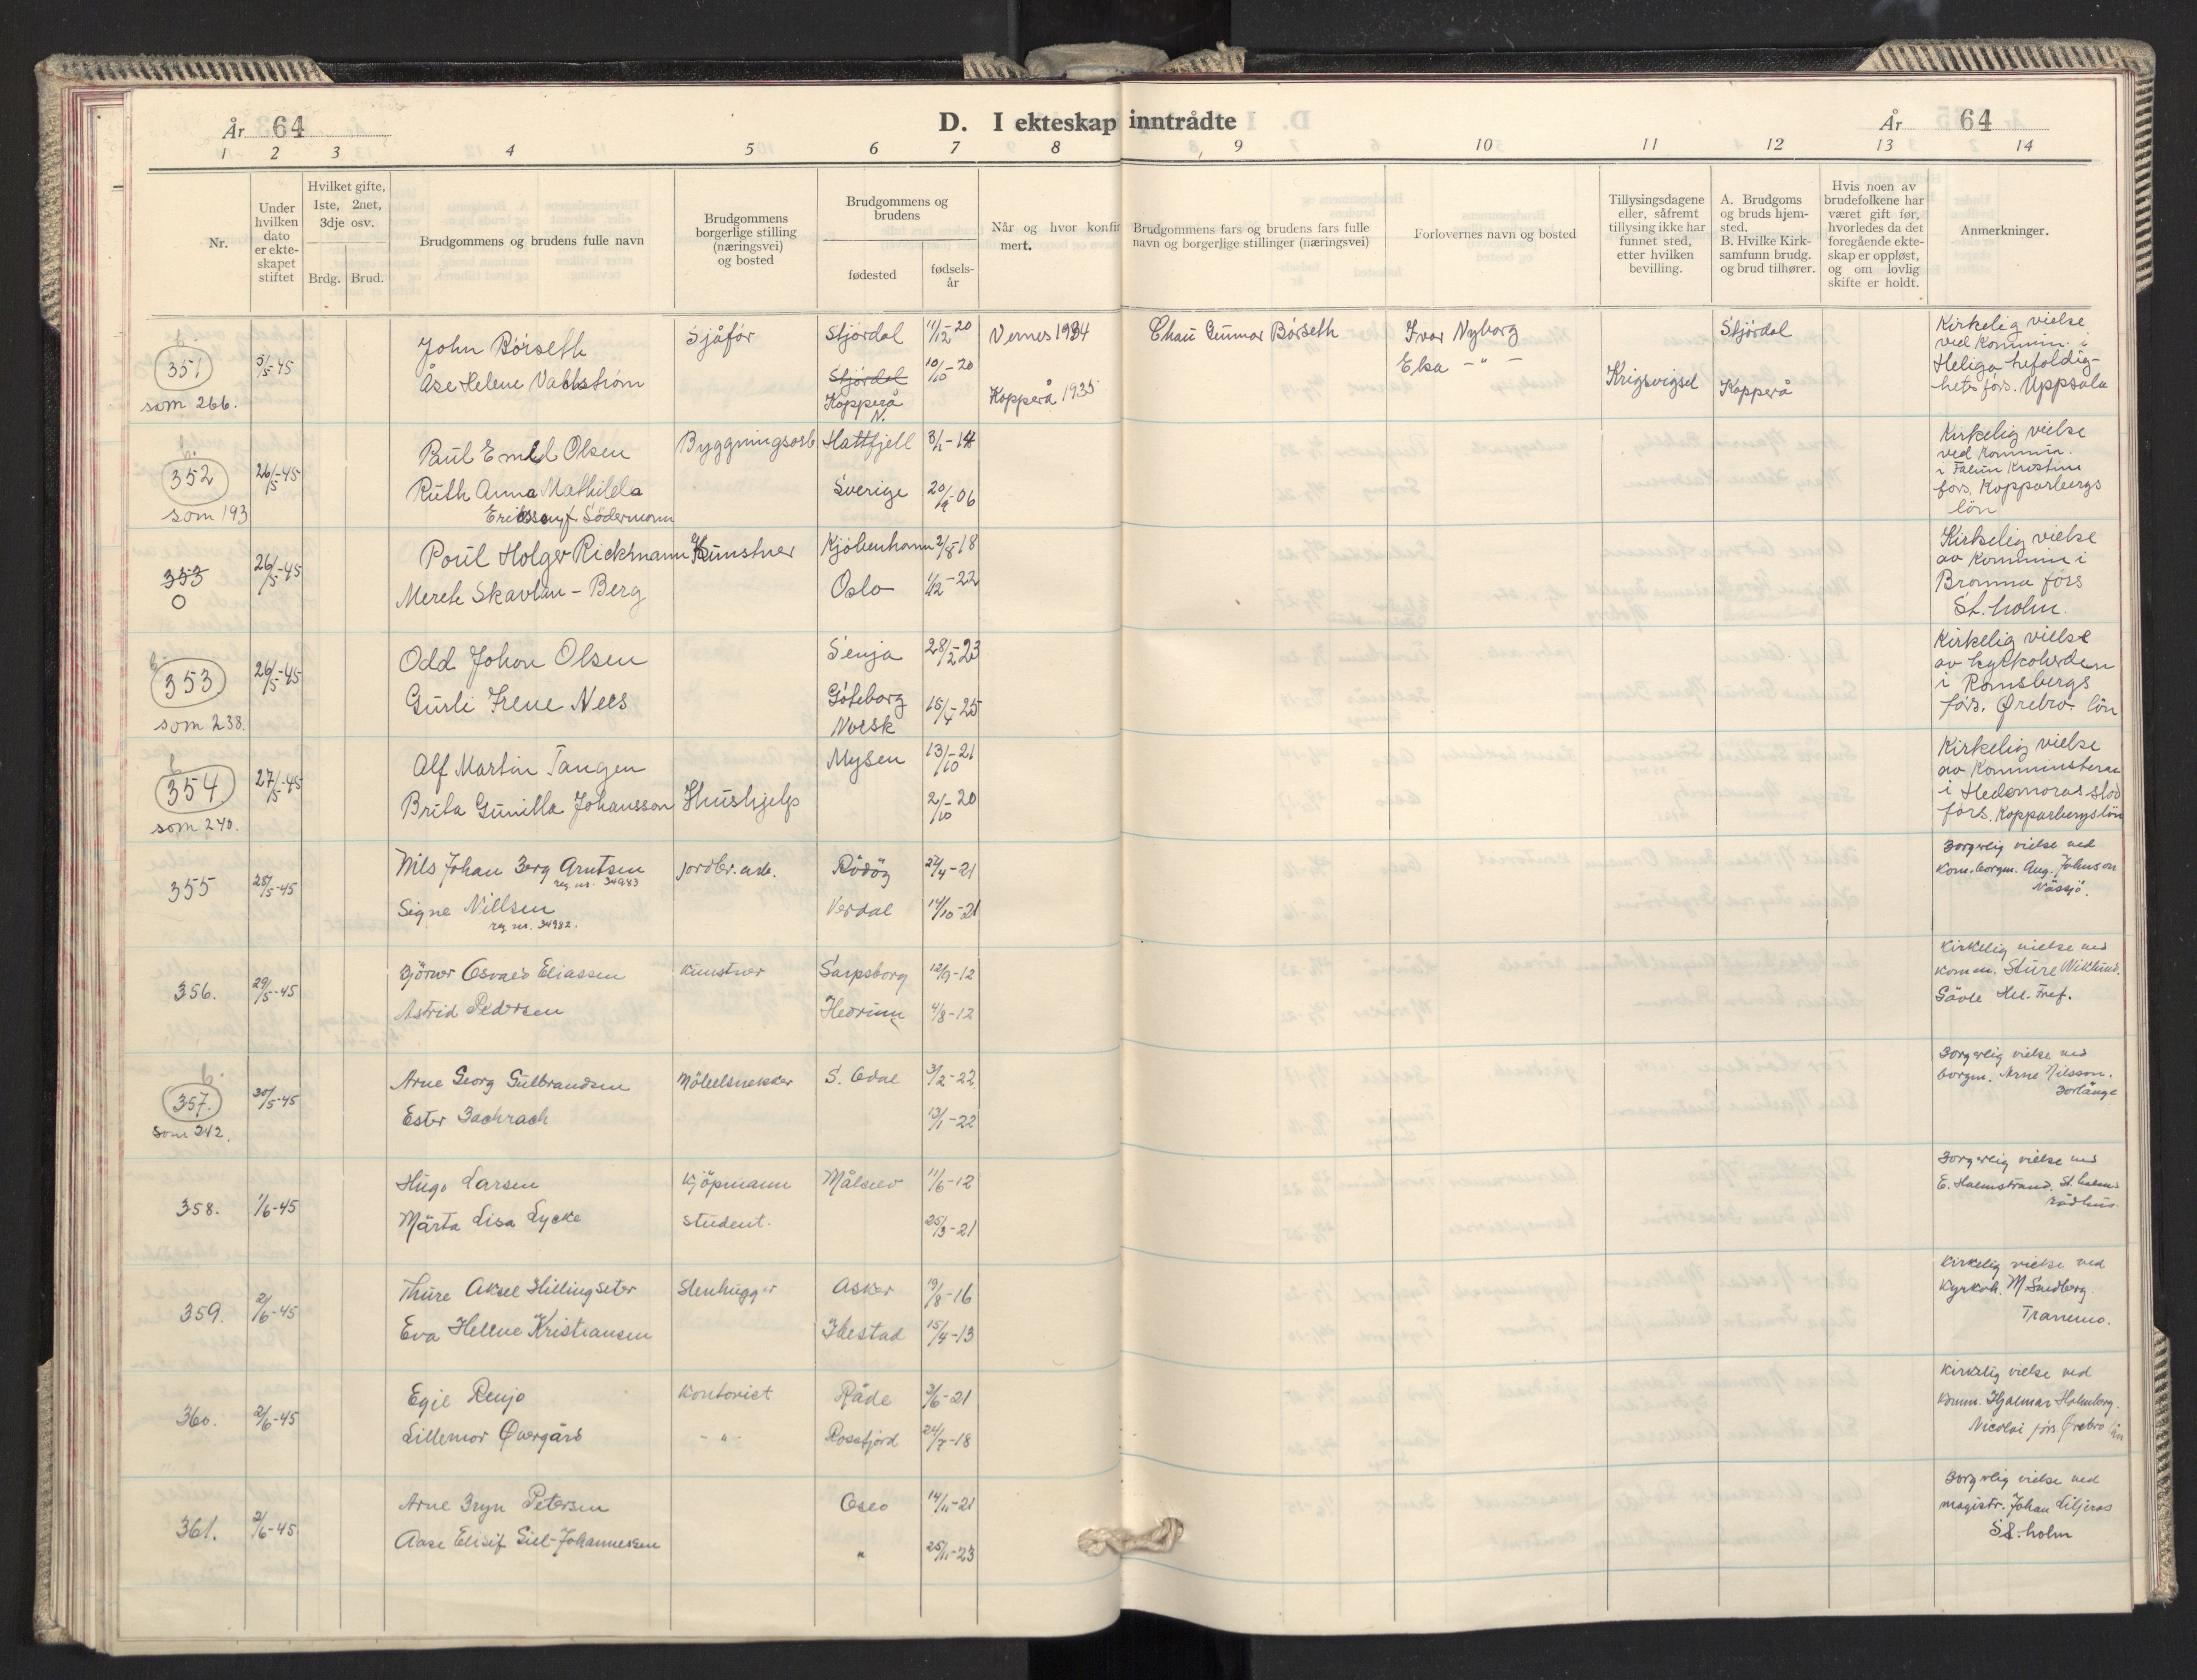 År 64
D. I ekteskap inntrådte
År 64
1 2 3 4 5 6 7 8 9 10 11 12 13 14
Nr.
Under hvilken dato er ekteskapet stiftet
Hvilket gifte, 1ste, 2net, 3dje osv.
Brdg. Brud.
Brudgommens og brudens fulle navn
Brudgommens borgerlige stilling (næringsvei) og bosted
Brudgommens og brudens
fødested
fødselsår
Når og hvor konfirmert.
Brudgommens fars og brudens fars fulle navn og borgerlige stillinger (næringsvei)
Forlovernes navn og bosted
Tillysingsdagene eller, såfremt tillysing ikke har funnet sted, etter hvilken bevilling.
A. Brudgoms og bruds hjemsted.
B. Hvilke Kirksamfunn brudg. og brud tilhører.
Hvis noen av brudefolkene har været gift før, hvorledes da det foregående ekteskap er oppløst, og om lovlig skifte er holdt.
Anmerkninger.
351 5/5-45 John Börseth Sjåfør Stjørdal 11/12-20 Vernes 1934 Gunnar Börseth Ivar Nyborg Stjørdal
som 266. Åse Helene Stjørdal Kopperå 10/10-20 Kopperå 1935 Elsa -"- Krigsvigsel Kopperå
Kirkelig vielse
ved Kommin. i
Heliga
förs. Uppsala
352 26/5-45 Paul Emil Olsen Hattfjell
som 193 Ruth Anna Mathilda Sverige 20/9-06
Kirkelig vielse
ved Kommin.
i Falun Kristine
förs. Kopparbergs
län
353 26/5-45 Poul Holger Rickmann Kunstner Kjøbenhavn 2/8-18
Merete Skavlan-Berg Oslo 1/2-22
Kirkelig vielse
av Kommin i
Bromma förs
St. holm.
353 26/5-45 Odd Johan Olsen Senja 28/2-23
som 238. Gurli Irene Nees Göteborg Norsk -25
Kirkelig vielse
av kyrkoherden
i Ramsbergs
förs. Ørebro län
354 27/5-45 Alf Martin Tangen Mysen 13/10-21
som 240. Brita Gunilla Johansson Hushjelp 2/10-20
Kirkelig vielse
av Komministeren
i Hedemoras
förs. Kopparbergs län
355 28/5-45 Nils Johan Borg Arntsen jordbr. arb. Rödöy 24/4-21
reg nr. 34983
Signe Nillsen Verdal 14/10-21
reg nr. 34982.
Borgerlig vielse ved
Kom. borgm. Aug. Johnson
Nässjö.
356. 29/5-45 Björner Osvald Eliassen Kunstner Sarpsborg 12/9-12
Astrid Pedersen Hedrum 4/8-12
Kirkelig vielse ved
komm. Sture Wiklund.
Gävle Hel. Tref.
357. 30/5-45 Arne Georg Gulbrandsen Möbelsnekker S. Odal 3/2-22
som 242. Ester Bachrach 13/1-22
Borgerlig vielse ved
borgm. Arne Nilsson.
Borlänge
358. 1/6-45 Hugo Larsen Kjöpmann Målselv 11/6-12
Märta Lisa Lycke student. 25/3-21
Borgerlig vielse ved
E. Holmstrand. St. holms
rådhus
359. 2/6-45 Thure Aksel Hillingseter Stenhugger Asker 19/8-16
Eva Helene Kristiansen Ibestad 15/4-13
Kirkelig vielse ved
Kyrkoh. M Sundberg.
Tranemo.
360. 2/6-45 Egil Renjo Kontorist Råde 3/6-21
Lillemor Øvergård -"- Rossfjord 24/7-18
Kirkelig vielse ved
komm. Hjalmar Holmberg.
Nicolai förs. Ørebro län
361. 2/6-45 Arne Bryn Petersen Oslo 14/11-21
Aase Elisif Siel-Johannessen " 25/11-23
Borgerlig vielse ved
magistr. Johan Liljeros
St. holm